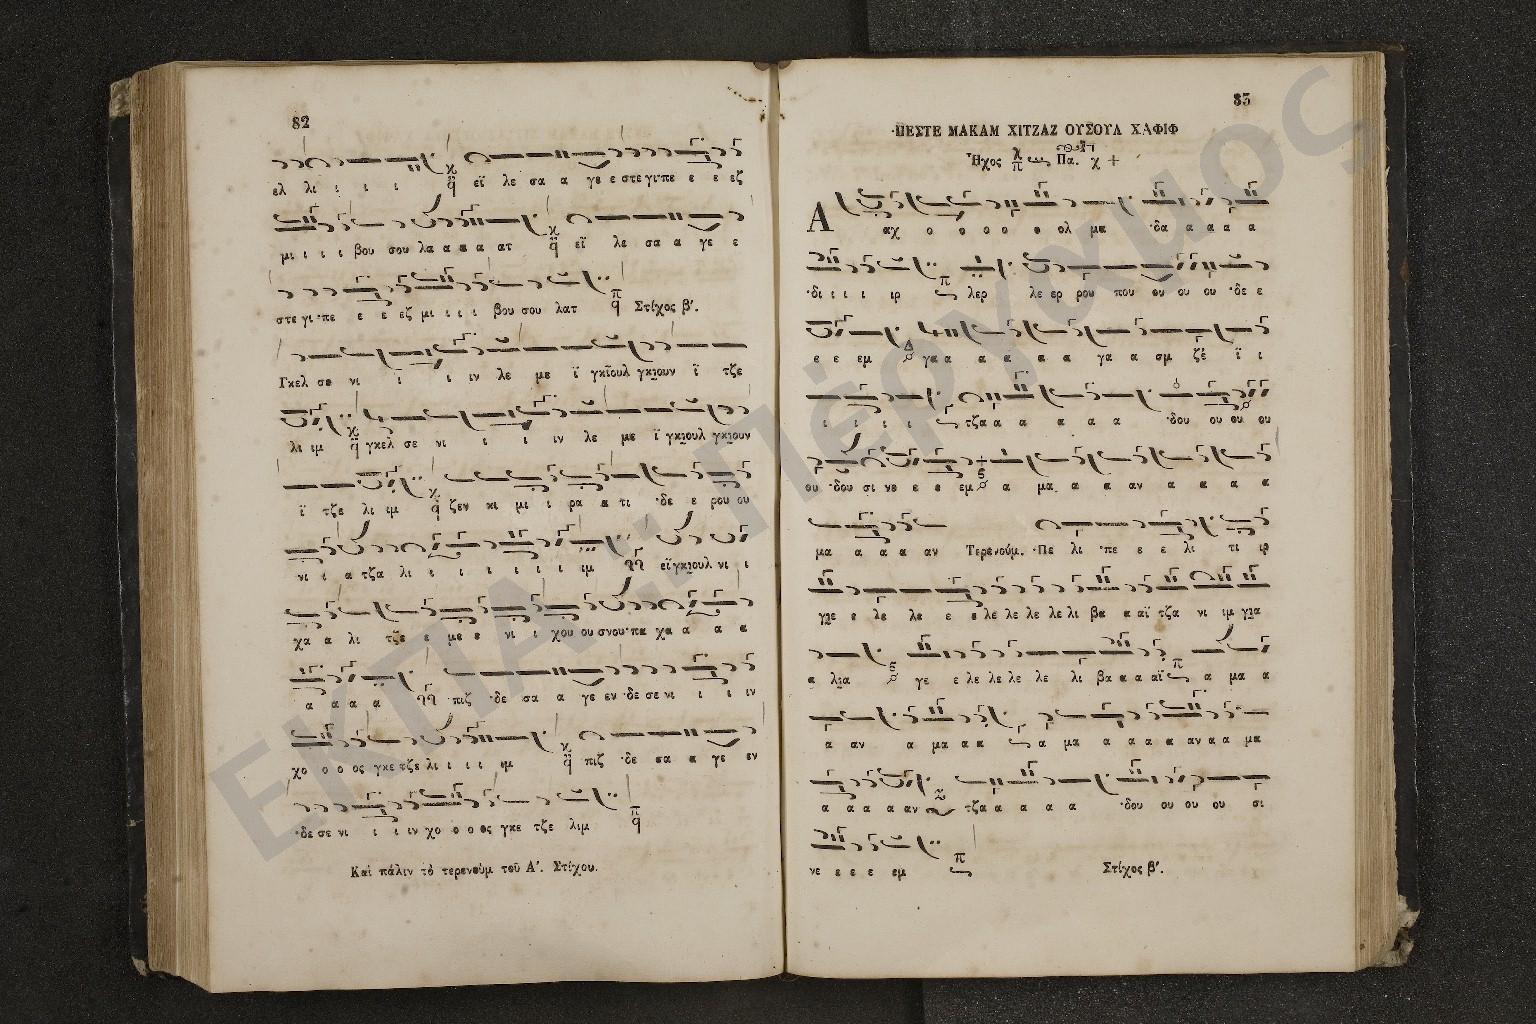 82
ελ λι ι ι ι εϊ λε σα α γε ε στε γι ·πε ε ε εζ
μι ι ι ι βου σου λα α α α ατ εϊ λε σα α γε ε
στε γι ·πε ε ε εζ μι ι ι ι βου σου λατ Στίχος β΄.
Γκελ σε νι ι ι ιν λε με ϊ γκιουλ γκιουν ϊ τζε
λι ιμ γκελ σε νι ι ι ιν λε με ϊ γκιουλ γκιουν
ϊ τζε λι ιμ ζεν κι μι ι ρα α τι ·δε ε ρου ου
νι ι α τζα λι ι ι ι ι ι ι ιμ εϊ γκιουλ νι ι
χα α λι τζε ε με ε νι ι χου ου σνου ·πα χα α α α
α α α α πιζ ·δε σα α γε εν ·δε σε νι ι ι ιν
χο ο ο ος γκε τζε λι ι ι ι ιμ πιζ ·δε σα α γε εν
·δε σε νι ι ι ιν χο ο ο ος γκε τζε λιμ
Καὶ πάλιν τὸ τερενοὺμ τοῦ Α΄. Στίχου.
83
·ΠΕΣΤΕ ΜΑΚΑΜ ΧΙΤΖΑΖ ΟΥΣΟΥΛ ΧΑΦΙΦ
Ἦχος Πα. χ
Α αχ ο ο ο ο ο ολ μα ·δα α α α α
·δι ι ι ι ιρ λερ λε ερ ρου που ου ου ου ·δε ε
ε ε εμ γα α α α α α γα α σμ ζέ ϊ ι
ι ι ι ι τζα α α α α α α ·δου ου ου ου
ου ·δου σι νε ε ε εμ α μα α α αν α α α α
μα α α α αν Τερενούμ. ·Πε λι ·πε ε ε λι τι ιρ
γιε ε λε λε ε ε λε λε λε λε λι βα α αϊ τζα νι ιμ για
α λια γε ε λε λε λε λε λι βα α α αϊ α μα α
α αν α μα α α α μα α α α α αν α α μα
α α α α αν τζα α α α α ·δου ου ου ου σι
νε ε ε ε εμ Στίχος β΄.
ΕΚΠΑ, Πέργαμος